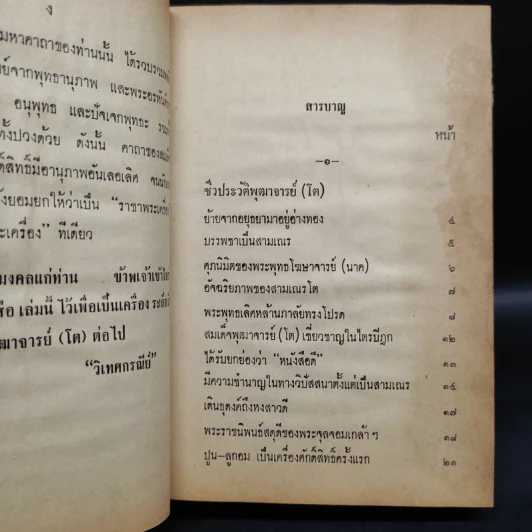 ง
มหาคาถาของท่านนั้น ได้รวบรวม
จากพุทธานุภาพ และพระอรหันต์
อนุพุทธ และปัจเจกพุทธะ
ทั้งปวงด้วย ดังนั้น คาถาของ
สิทธิ์มีอานุภาพอันเลอเลิศ จน
ยังยอมยกให้ว่าเป็น “ราชาพระเครื่อง
ะเครื่อง” ทีเดียว
มงคลแก่ท่าน ข้าพเจ้าเข้าใจ
เล่มนี้ ไว้เพื่อเป็นเครื่อง
ุฒาจารย์ (โต) ต่อไป
“วิเทศกรณีย์”
สารบาญ
หน้า
—๑—
ชีวประวัติพุฒาจารย์ (โต)
ย้ายจากอยุธยามาอยู่อ่างทอง ๔
บรรพชาเป็นสามเณร ๕
ศุภนิมิตของพระพุทธโฆษาจารย์ (นาค) ๖
อัจฉริยภาพของสามเณรโต ๗
พระพุทธเลิศหล้านภาลัยทรงโปรด ๘
สมเด็จพุฒาจารย์ (โต) เชี่ยวชาญในไตรปิฎก ๑๒
ได้รับยกย่องว่า “หนังสือดี” ๑๓
มีความชำนาญในทางวิปัสสนาตั้งแต่เป็นสามเณร ๑๔
เดินธุดงค์ถึงหงสาวดี ๑๗
พระราชนิพนธ์สดุดีของพระจุลจอมเกล้า ฯ ๑๘
ปูน–ลูกอม เป็นเครื่องศักดิ์สิทธิ์ครั้งแรก ๒๑